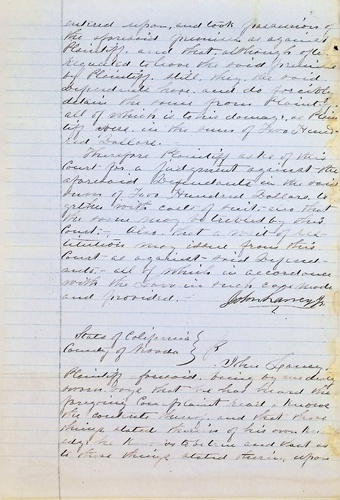 entered upon, and took possession of
the aforesaid premises as against
Plaintiff, and that, although often
requested to leave the said premises
by Plaintiff, still, they, the said
Defendants have, and do forcibly
detain the same from Plaintiff
all of which is to his damage, as Plain
tiff avers in the sum of Two Hun
red Dollars.
Therefore Plaintiff asks of this
Court for a Judgment against the
aforesaid Defendants in the said
sum of Two Hundred Dollars, to
gether with costs of suit - also that
the same may be by this
Court - Also that a writ of res
titution may issue from this
Court as against said Defend
ants - all of which in accordance
with the Law in such case made
and provided. -
State of California }
County of Nevada }
John
Plaintiff being duly
sworn, says that he has heard the
foregoing Complaint read & knows
the contents thereof, and that those
things stated therein of his own k
edge he to be true and that as
to those things stated therein, upon